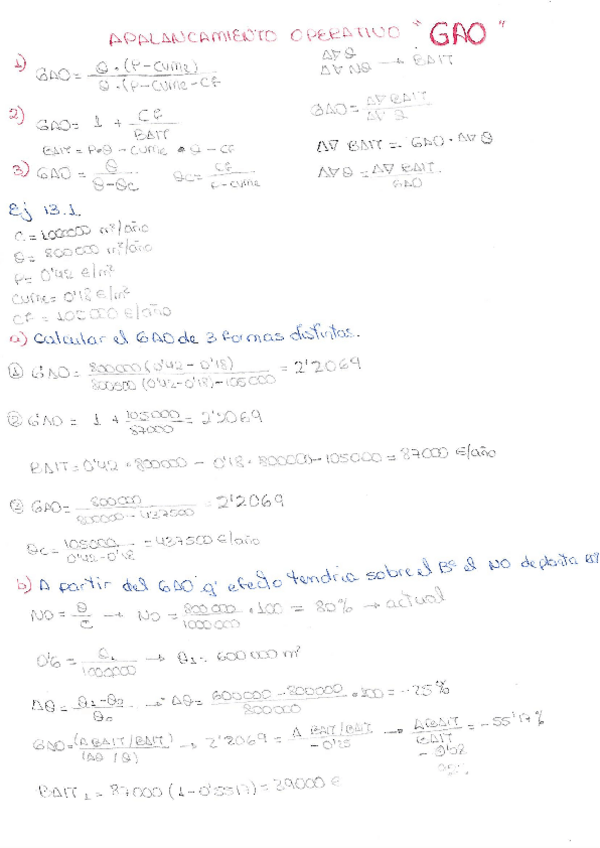 APALANCAMIENTO OPERATIVO "GAO"
1) GAO = Q · (P-CUme) / Q · (P-CUme-CF
Δ∇ Q
Δ∇ NO → BAIT
2) GAO = 1 + CF / BAIT
GAO = Δ∇ BAIT / Δ∇ Q
BAIT = P·Q - CUme · Q - CF
Δ∇ BAIT = GAO · Δ∇ Q
3) GAO = Q / Q-Qc Qc = CF / P-CUme
Δ∇ Q = Δ∇ BAIT / GAO
Ej 13.1.
C = 1000000 m²/año
Q = 800000 m²/año
P = 0'42 €/m²
CUme = 0'18 €/m²
CF = 105000 €/año
a) Calcular el GAO de 3 formas distintas.
① GAO = 800000 (0'42 - 0'18) / 800000 (0'42-0'18) - 105000 = 2'2069
② GAO = 1 + 105000 / 87000 = 2'2069
BAIT = 0'42 · 800000 - 0'18 · 800000 - 105000 = 87000 €/año
GAO = 800000 / 800000 - 437500 = 2'2069
Qc = 105000 / 0'42-0'18 = 437500 €/año
b) A partir del GAO q' efecto tendria sobre el Bº el NO de planta
NO = Q / C → NO = 800000 / 1000000 · 100 = 80% → actual
0'6 = Q₁ / 1000000 → Q₁ = 600000 m²
ΔQ = Q₁-Q₀ / Q₀ → ΔQ = 600000 - 800000 / 800000 · 100 = -25%
GAO = (ΔBAIT/BAIT) / (ΔQ/Q) → 2'2069 = Δ BAIT/BAIT / -0'25 → ΔBAIT / BAIT = -55'17%
BAIT₁ = 87000 (1-0'5517) = 39000 €